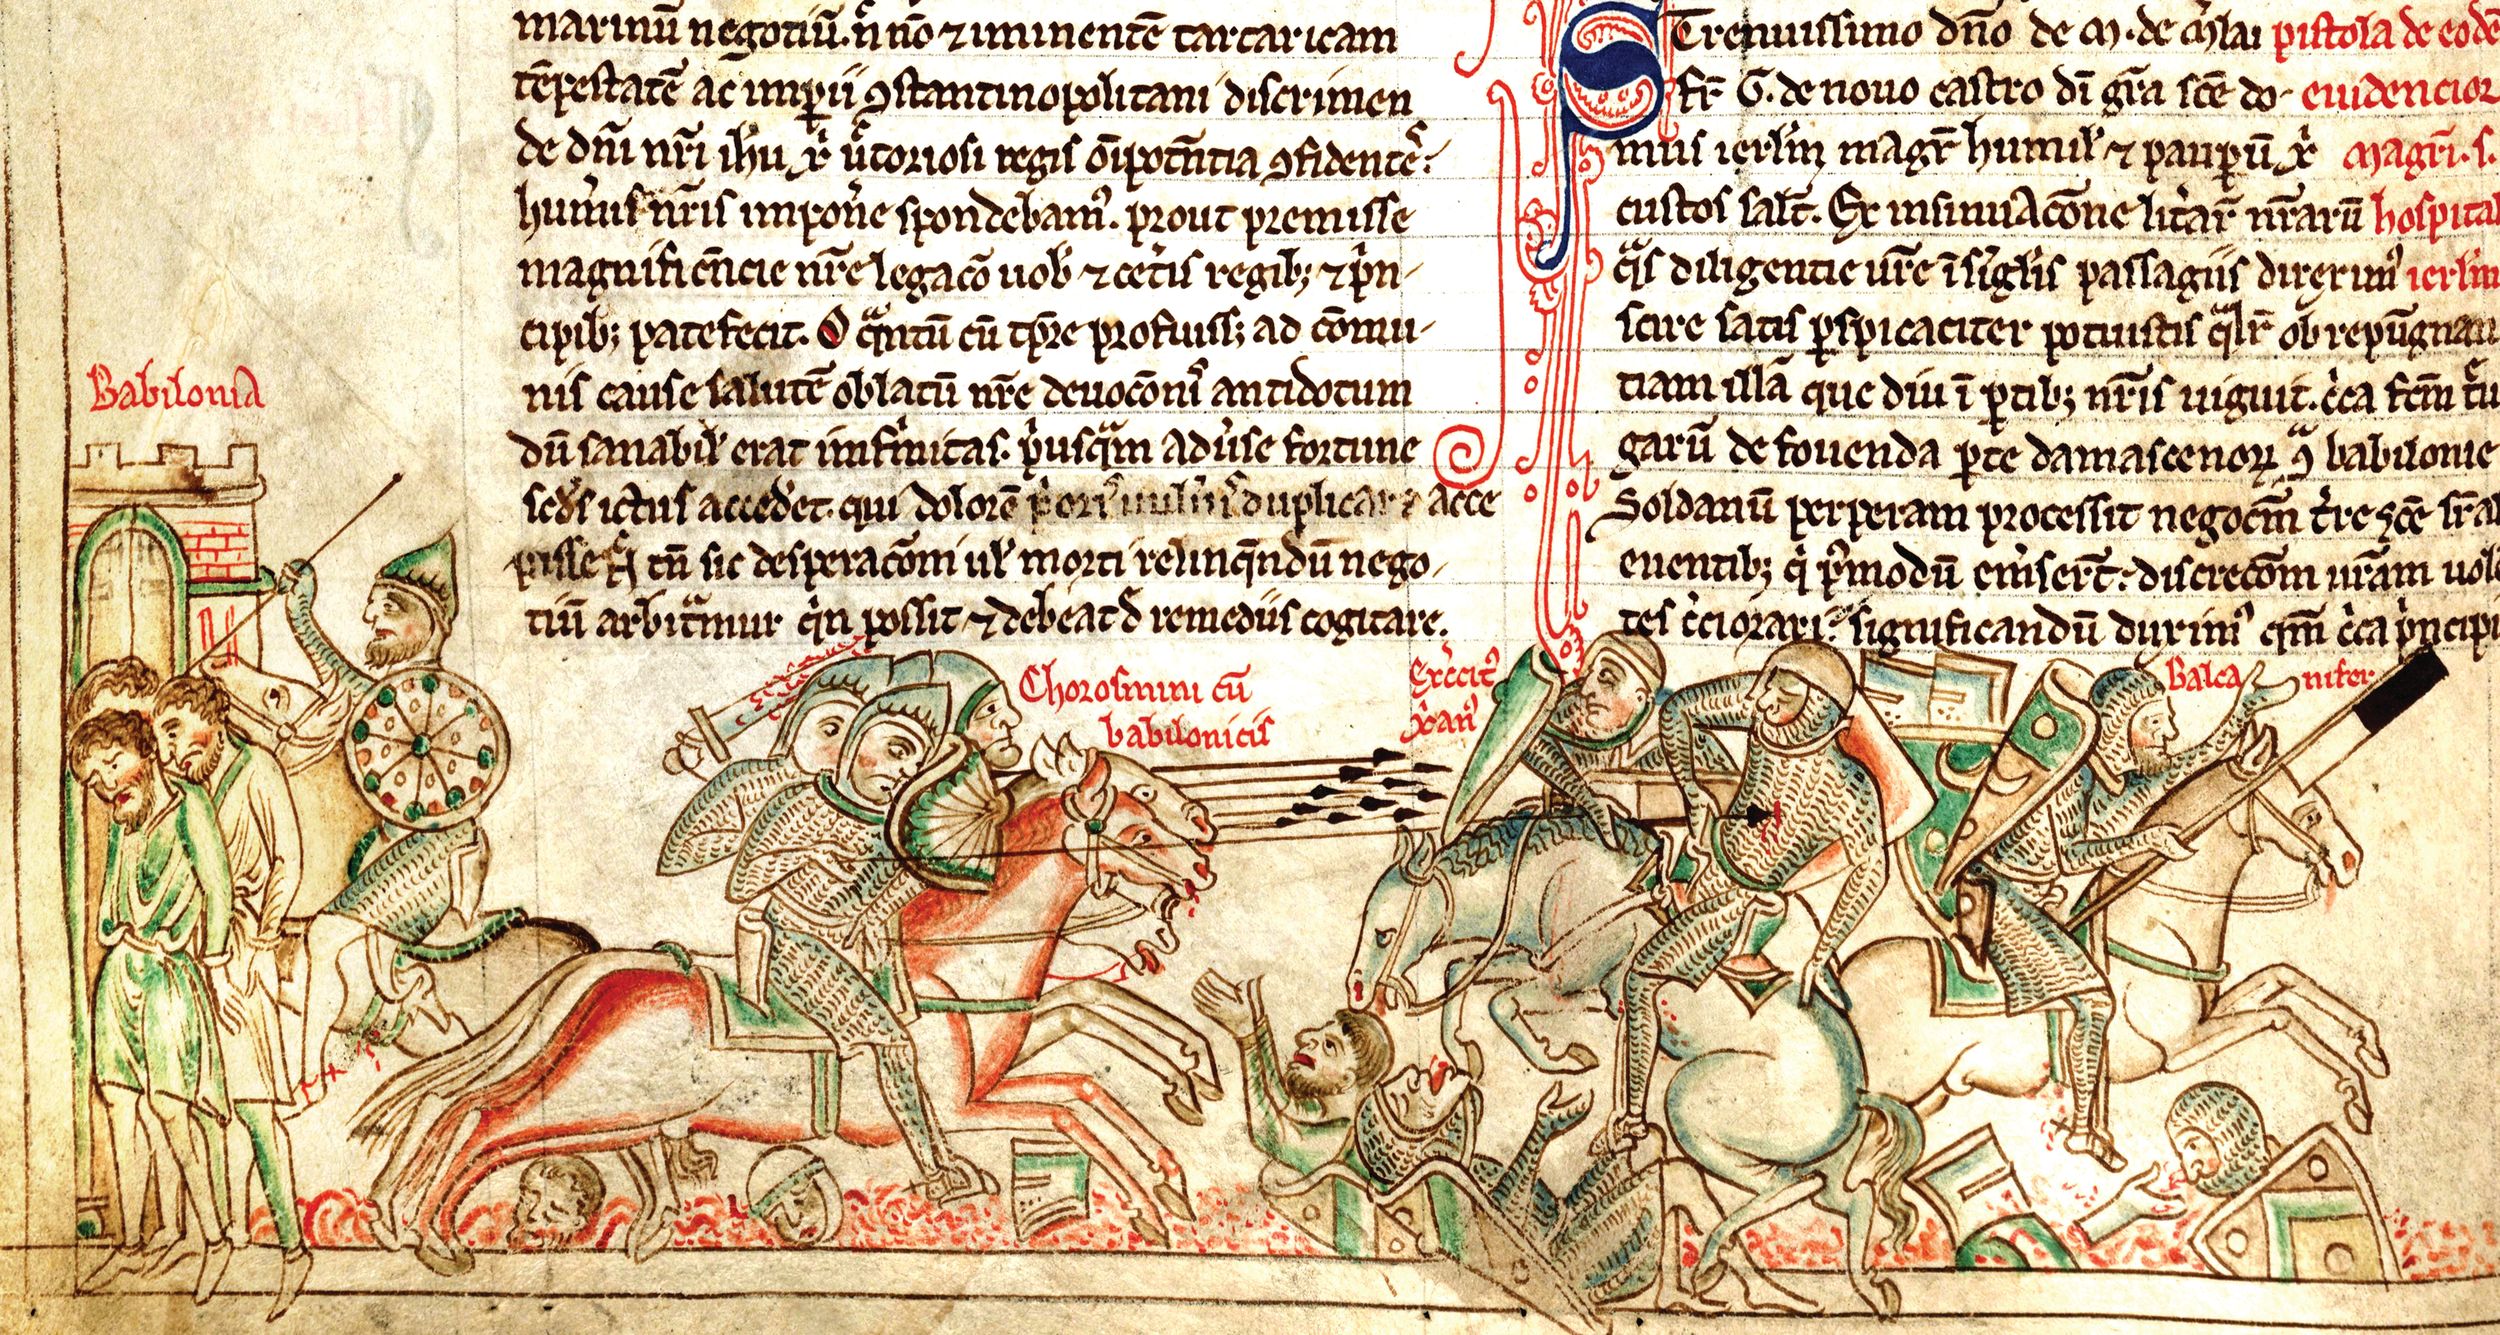 marinū negotiū. ñ nō ⁊ iminentē tartaricam
tēpestatē ac impii ꝯstantinopolitani discrimen
de dñi nr̄i ih'u xp̄i uictoriosi regis oīpotñtia ꝯfidentes:
hum'is nr̄is impon'e spondebam'. prout premisse
magnificēcie nr̄e legacō uob' ⁊ cet'is regib; ⁊ p'n-
cipib; patefecit. O q'ntū cū tp̄re profuiss; ad cōmu-
nis cause salutē oblatū nr̄e deuocōnis antidotum
dū sanabil' erat infirmitas. p'usq'm adu'se fortune
sed's ictus acced'et. qui dolorē p'oris uuln'is duplicar; acce
pisse. tñ sic desperacōni ul' morti relinq̄ndū nego-
tiū arbit'mur q̄n possit ⁊ debeat d' remediis cogitare.
Babilonia
Chorosmini cū
babilonicis
Ex'cit'
xp̄ian'
Balca nifer
Strenuissimo dño de M. de M'lai pistola de eodē
fr̄ G. de nouo castro dī gr̄a sc̄e do- euidencior
mus ierl'm magr̄ humil' ⁊ paup̄ū xp̄i magr̄i. s.
custos salt̄. Ex insinuacōne lit'ar̄ nr̄arū hospital
q's diligentie ur̄e ī si'gl'is passagiis direxim' ierl'm
scire satis p̱spicaciter potuistis q'lr̄ ob repūgnan
tiam illā que diu ī p̱tib; nr̄is uiguit. c'ca fc̄m t'u
garū de fouenda p̱te damascenoꝝ ꝯ' babilonie
Soldanū perperam processit negocm̄ t're sc̄e
euentib; q' p'modū em'sert̄: discrecōm ur̄am uolē
tes c'ciorari: significandū duxim' qm̄ c'ca p'ncipi